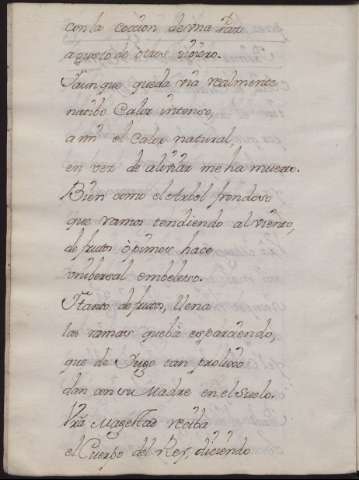 con la coccion de una
a gusto de otros
Y aunque queda via realmente
recibo Calor intenso,
a mi el Calor natural,
en vez de alibiar me ha muerto.
Bien como el Arbol frondoso
que ramos tendiendo al viento,
de frutos opimos hace
universal embeleso.
Y tanto de frutos, llena
las ramas que ba esparciendo,
que de Jugo tan prolixo
dan con su Madre en el suelo.
Vra Magestad reciba
el Cuerpo del Rey, diciendo